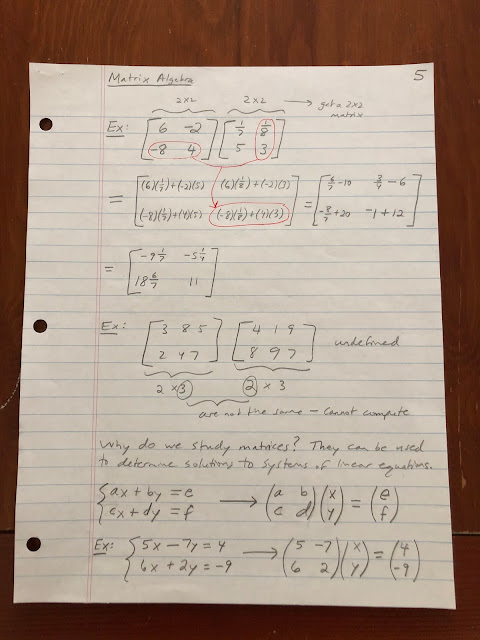 Matrix Algebra 5
2x2 2x2 → get a 2x2 matrix
Ex: [6 -2; -8 4] [1/7 1/8; 5 3]
= [(6)(1/7)+(-2)(5) (6)(1/8)+(-2)(3); (-8)(1/7)+(4)(5) (-8)(1/8)+(4)(3)] = [6/7-10 3/4-6; -8/7+20 -1+12]
= [-9 1/7 -5 1/4; 18 6/7 11]
Ex: [3 8 5; 2 4 7] [4 1 9; 8 9 7] undefined
2 x 3 2 x 3
are not the same - cannot compute
Why do we study matrices? They can be used
to determine solutions to systems of linear equations.
{ax + by = e; cx + dy = f → (a b; c d)(x; y) = (e; f)
Ex: {5x - 7y = 4; 6x + 2y = -9 → (5 -7; 6 2)(x; y) = (4; -9)